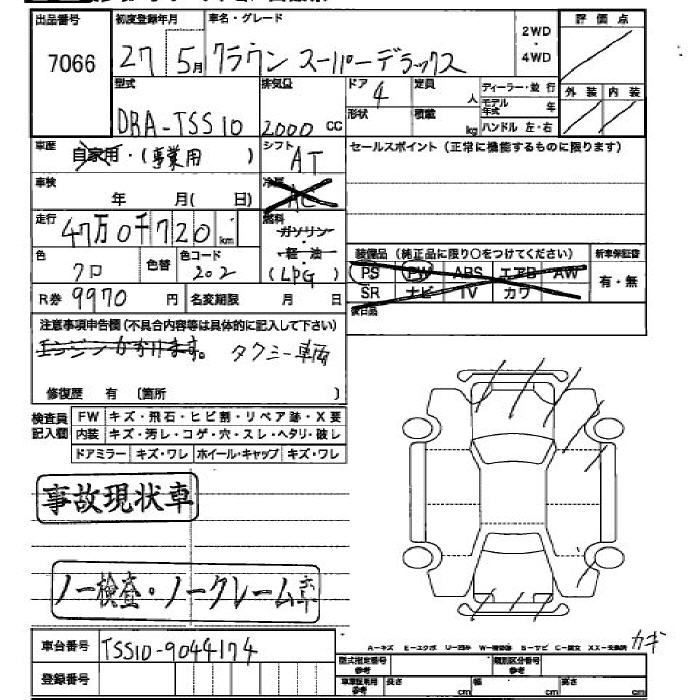 出品番号 初度登録年月 車名・グレード 2WD・4WD 評価点
7066 27 5月 クラウン スーパーデラックス
型式 排気量 ドア 定員 ディーラー・並行 外装 内装
DBA-TSS10 2000 CC 4 人 モデル年式 年
形状 積載 kg ハンドル 左・右
車歴 自家用・(事業用 ) シフト AT セールスポイント (正常に機能するものに限ります)
車検 年 月( 日) 冷房 AC
走行 47万0千720km 燃料 ガソリン・軽油・(LPG)
色 クロ 色替 色コード 202 装備品 (純正品に限り○をつけてください) 新車保証書
PS PW ABS エアB AW 有・無
R券 9970 円 名変期限 月 日 SR ナビ TV カワ
後日品
注意事項申告欄(不具合内容等は具体的に記入して下さい)
エンジンかかります。 タクシー車両
修復歴 有 (箇所 )
検査員記入欄 FW キズ・飛石・ヒビ割・リペア跡・X要
内装 キズ・汚レ・コゲ・穴・スレ・ヘタリ・破レ
ドアミラー キズ・ワレ ホイール・キャップ キズ・ワレ
事故現状車
ノー検査・ノークレーム
車台番号 TSS10-9044174 カギ
A-キズ E-エクボ
登録番号 型式指定番号 参考 類別区分番号 参考
車庫証明用 参考 長さ cm 幅 cm 高さ cm